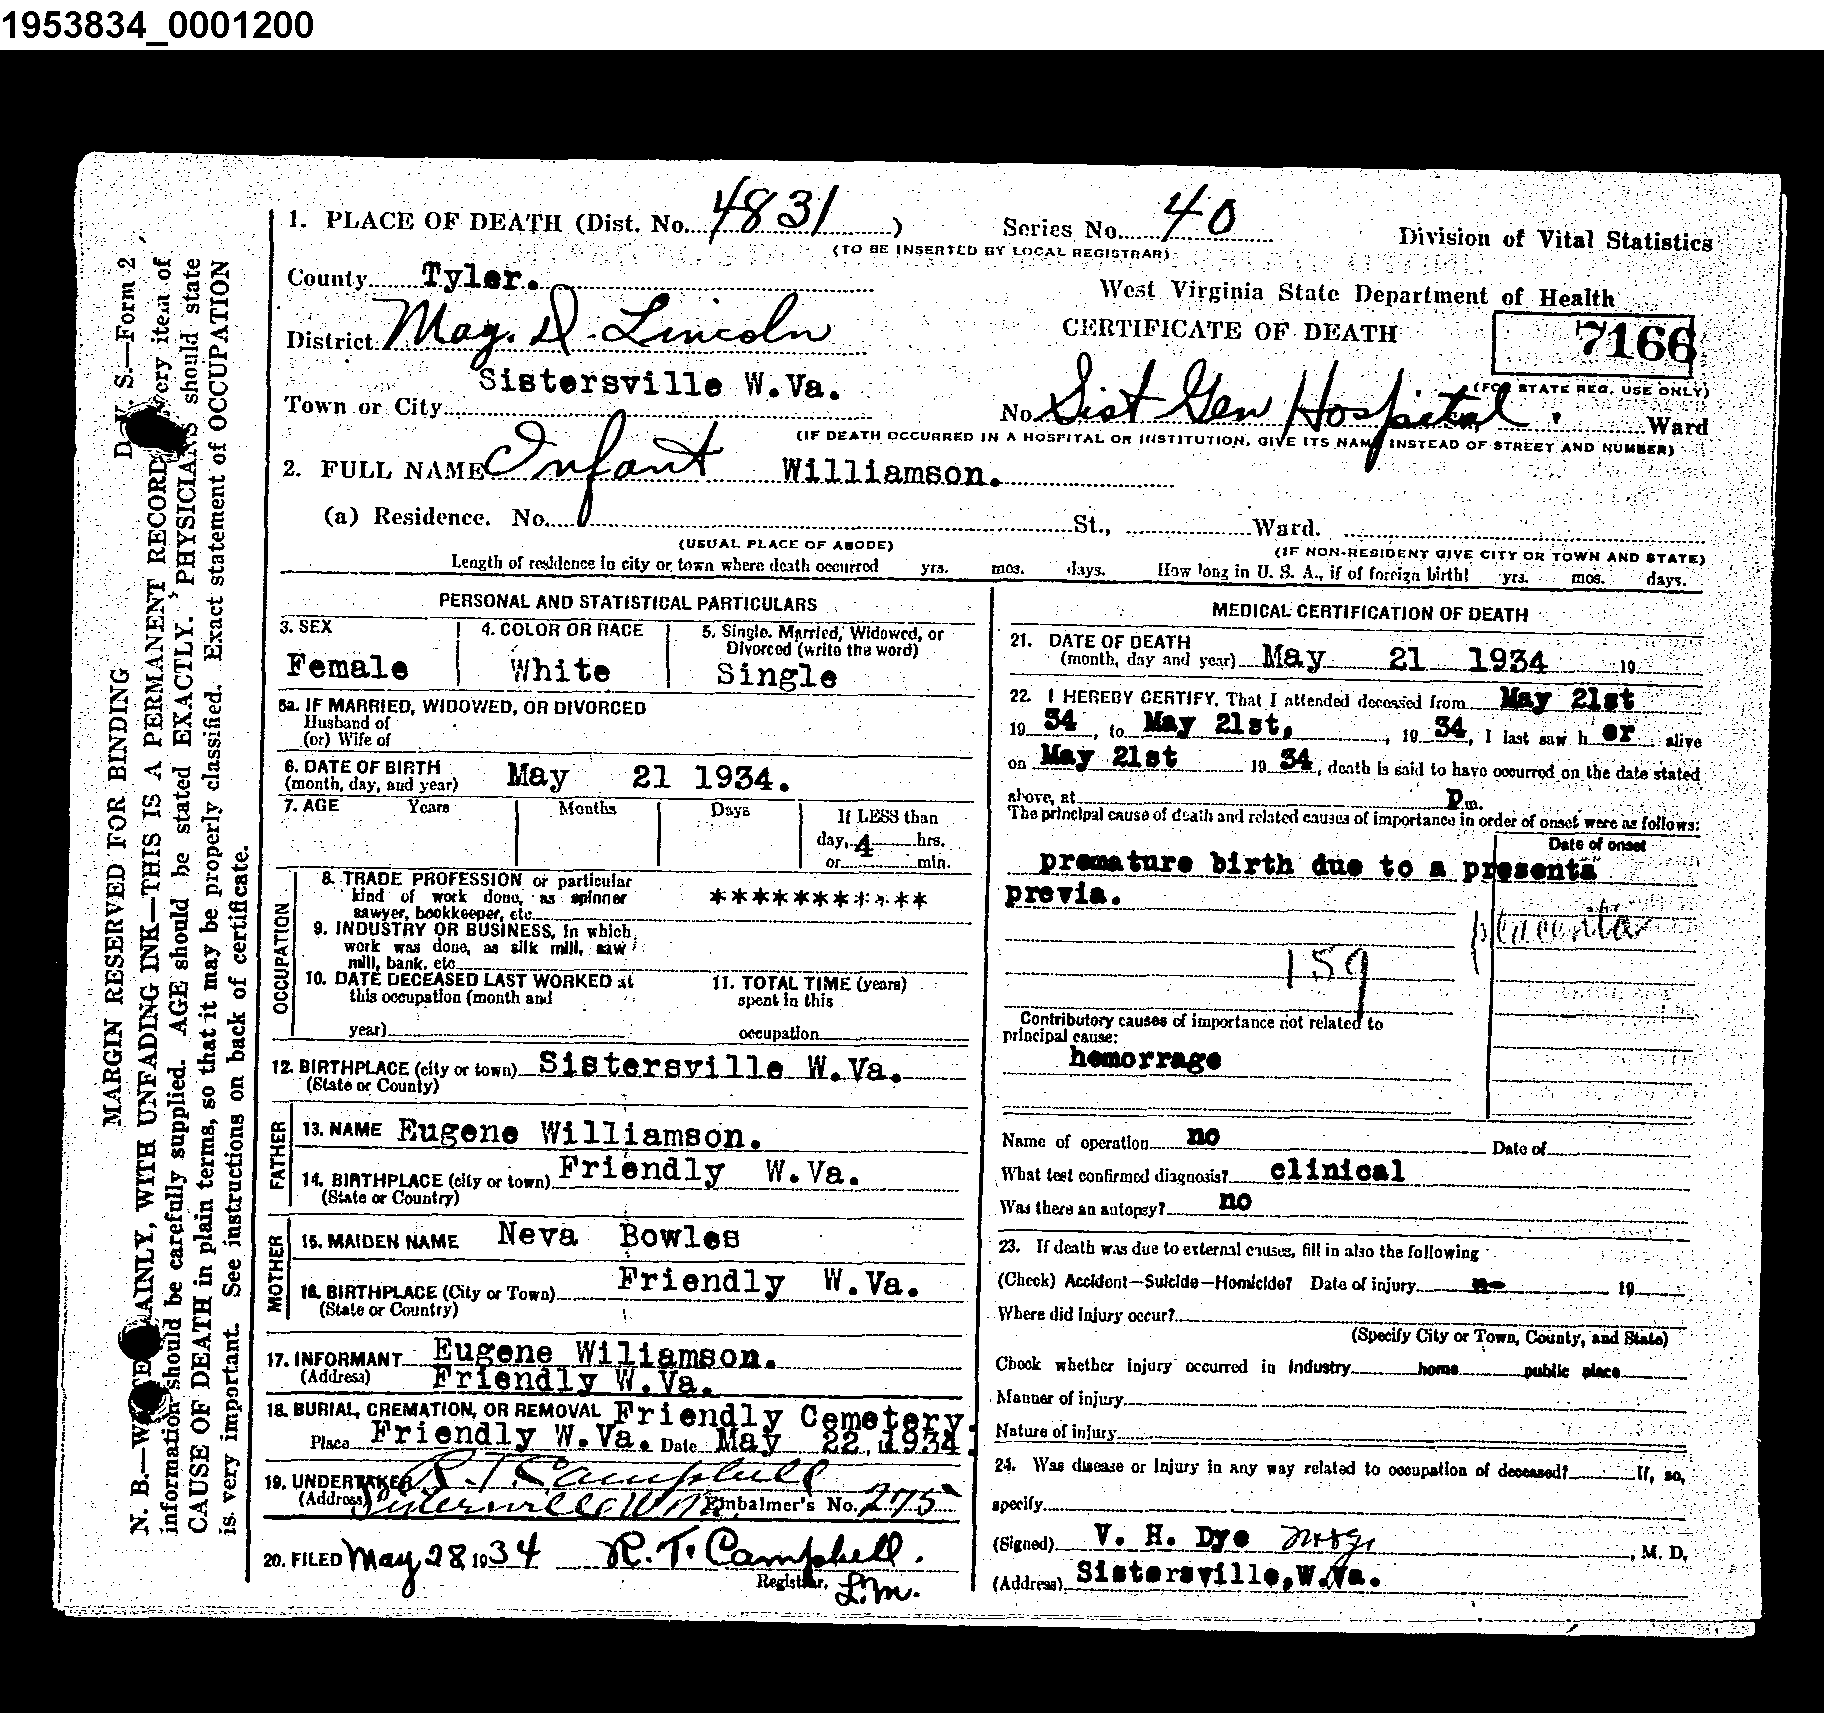 1953834_0001200
1. PLACE OF DEATH (Dist. No. 4831 )
Series No. 40
(TO BE INSERTED BY LOCAL REGISTRAR)
Division of Vital Statistics
County Tyler.
West Virginia State Department of Health
District Mag. D. Lincoln
CERTIFICATE OF DEATH
7166
(FOR STATE REG. USE ONLY)
Town or City Sistersville W.Va.
No. Sist Gen Hospital. Ward
(IF DEATH OCCURRED IN A HOSPITAL OR INSTITUTION, GIVE ITS NAME INSTEAD OF STREET AND NUMBER)
2. FULL NAME Infant Williamson.
(a) Residence. No. St., Ward.
(USUAL PLACE OF ABODE) (IF NON-RESIDENT GIVE CITY OR TOWN AND STATE)
Length of residence in city or town where death occurred yrs. mos. days. How long in U. S. A., if of foreign birth? yrs. mos. days.
PERSONAL AND STATISTICAL PARTICULARS
3. SEX
Female
4. COLOR OR RACE
White
5. Single. Married, Widowed, or
Divorced (write the word)
Single
5a. IF MARRIED, WIDOWED, OR DIVORCED
Husband of
(or) Wife of
6. DATE OF BIRTH
(month, day, and year) May 21 1934.
7. AGE Years Months Days If LESS than
day, 4 hrs.
or min.
OCCUPATION
8. TRADE PROFESSION or particular
kind of work done, as spinner
sawyer, bookkeeper, etc.
**********
9. INDUSTRY OR BUSINESS, in which
work was done, as silk mill, saw
mill, bank, etc
10. DATE DECEASED LAST WORKED at
this occupation (month and
year)
11. TOTAL TIME (years)
spent in this
occupation
12. BIRTHPLACE (city or town) Sistersville W.Va.
(State or County)
FATHER
13. NAME Eugene Williamson.
14. BIRTHPLACE (city or town) Friendly W.Va.
(State or Country)
MOTHER
15. MAIDEN NAME Neva Bowles
16. BIRTHPLACE (City or Town) Friendly W.Va.
(State or Country)
17. INFORMANT Eugene Wiliamson.
(Address) Friendly W.Va.
18. BURIAL, CREMATION, OR REMOVAL Friendly Cemetery.
Place Friendly W.Va. Date May 22, 1934.
19. UNDERTAKER R.T. Campbell
(Address) Sistersville W.Va. Embalmer's No. 275
20. FILED May 28 1934 R. T. Campbell.
Registrar. L.M.
MEDICAL CERTIFICATION OF DEATH
21. DATE OF DEATH
(month, day and year) May 21 1934 19
22. I HEREBY CERTIFY, That I attended deceased from May 21st
19 34, to May 21st, , 19 34, I last saw h er alive
on May 21st 19 34, death is said to have occurred on the date stated
above, at P m.
The principal cause of death and related causes of importance in order of onset were as follows:
Date of onset
premature birth due to a presenta
previa.
placenta
159
Contributory causes of importance not related to
principal cause:
hemorrage
Name of operation no Date of
What test confirmed diagnosis? clinical
Was there an autopsy? no
23. If death was due to external causes, fill in also the following
(Check) Accident—Suicide—Homicide? Date of injury 19
Where did injury occur?
(Specify City or Town, County, and State)
Check whether injury occurred in industry home public place
Manner of injury
Nature of injury
24. Was disease or injury in any way related to occupation of deceased? If, so,
specify
(Signed) V. H. Dye , M. D.
(Address) Sistersville,W.Va.
D. V. S.—Form 2
MARGIN RESERVED FOR BINDING
N. B.—WRITE PLAINLY, WITH UNFADING INK—THIS IS A PERMANENT RECORD. Every item of
information should be carefully supplied. AGE should be stated EXACTLY. PHYSICIANS should state
CAUSE OF DEATH in plain terms, so that it may be properly classified. Exact statement of OCCUPATION
is very important. See instructions on back of certificate.